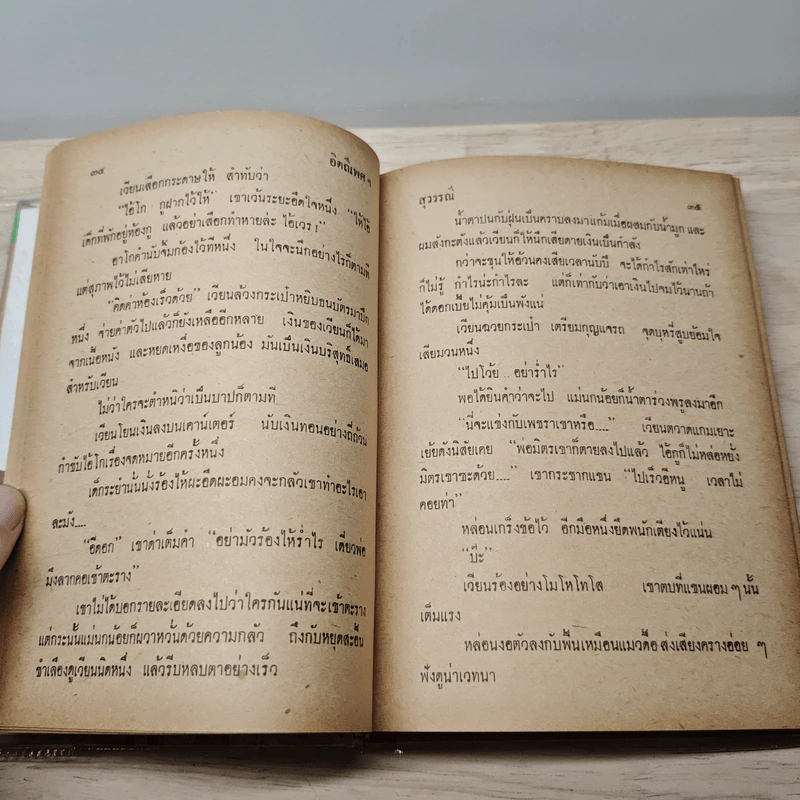 ๓๔
อิตถีเพศ ๆ
เวียนเลือกกระดาษให้ สำทับว่า
"ไอ้โก กูฝากไว้ให้" เขาเว้นระยะอึดใจหนึ่ง "ให้ไอ้
เด็กที่พักอยู่ห้องกู แล้วอย่าเสือกทำหายล่ะ ไอ้เวร!"
อาโกคำนับจั้มก้องไว้ทีหนึ่ง ในใจจะนึกอย่างไรก็ตามที
แต่สุภาพไว้ไม่เสียหาย
"คิดค่าห้องเร็วด้วย" เวียนล้วงกระเป๋าหยิบธนบัตรมาปึก
หนึ่ง จ่ายค่าตัวไปแล้วก็ยังเหลืออีกหลาย เงินของเวียนก็ได้มา
จากเนื้อหนัง และหยดเหงื่อของลูกน้อง มันเป็นเงินบริสุทธิ์เสมอ
สำหรับเวียน
ไม่ว่าใครจะตำหนิว่าเป็นบาปก็ตามที
เวียนโยนเงินลงบนเคาน์เตอร์ นับเงินทอนอย่างถี่ถ้วน
กำชับไอ้โกเรื่องจดหมายอีกครั้งหนึ่ง
เด็กระยำนั้นนั่งร้องไห้ผะอืดผะอมคงจะกลัวเขาทำอะไรเอา
ละมัง....
"อีดอก" เขาด่าเต็มคำ "อย่ามัวร้องไห้ร่ำไร เดี๋ยวพ่อ
มึงลากคอเข้าตะราง"
เขาไม่ได้บอกรายละเอียดลงไปว่าใครกันแน่ที่จะเข้าตะราง
แต่กระนั้นแม่นกน้อยก็ผวาหวั่นด้วยความกลัว ถึงกับหยุดสะอื้น
ชำเลืองดูเวียนนิดหนึ่ง แล้วรีบหลบตาอย่างเร็ว
สุวรรณี
๓๕
น้ำตาปนกับฝุ่นเป็นคราบลงมาแก้มเมื่อผสมกับน้ำมูก และ
ผมสังกะตังแล้วเวียนก็ให้นึกเสียดายเงินเป็นกำลัง
กว่าจะขุนให้อ้วนคงเสียเวลานับปี จะได้กำไรสักเท่าไหร่
ก็ไม่รู้ กำไรน่ะกำไรละ แต่ก็เท่ากับว่าเอาเงินไปจมไว้นานถ้า
ได้ดอกเบี้ยไม่คุ้มเป็นพังแน่
เวียนฉวยกระเป๋า เตรียมกุญแจรถ จุดบุหรี่สูบย้อมใจ
เสียมวนหนึ่ง
"ไปโว้ย .. อย่าร่ำไร"
พอได้ยินคำว่าจะไป แม่นกน้อยก็น้ำตาร่วงพรูลงมาอีก
"นี่จะแช่งกับเพชราเขาหรือ...." เวียนตวาดแกมเยาะ
เย้ยดังนิสัยเคย "พ่อมิตรเขาก็ตายลงไปแล้ว ไอ้กูก็ไม่หล่อหยั่ง
มิตรเขาซะด้วย...." เขากระชากแขน "ไปเร็วอีหนู เวลาไม่
คอยท่า"
หล่อนเกร็งข้อไว้ อีกมือหนึ่งยึดพนักเตียงไว้แน่น
"บ๊ะ"
เวียนร้องอย่างโมโหโทโส เขาตบที่แขนผอม ๆ นั้น
เต็มแรง
หล่อนงอตัวลงกับพื้นเหมือนแมวดื้อ ส่งเสียงครางอ่อย ๆ
ฟังดูน่าเวทนา